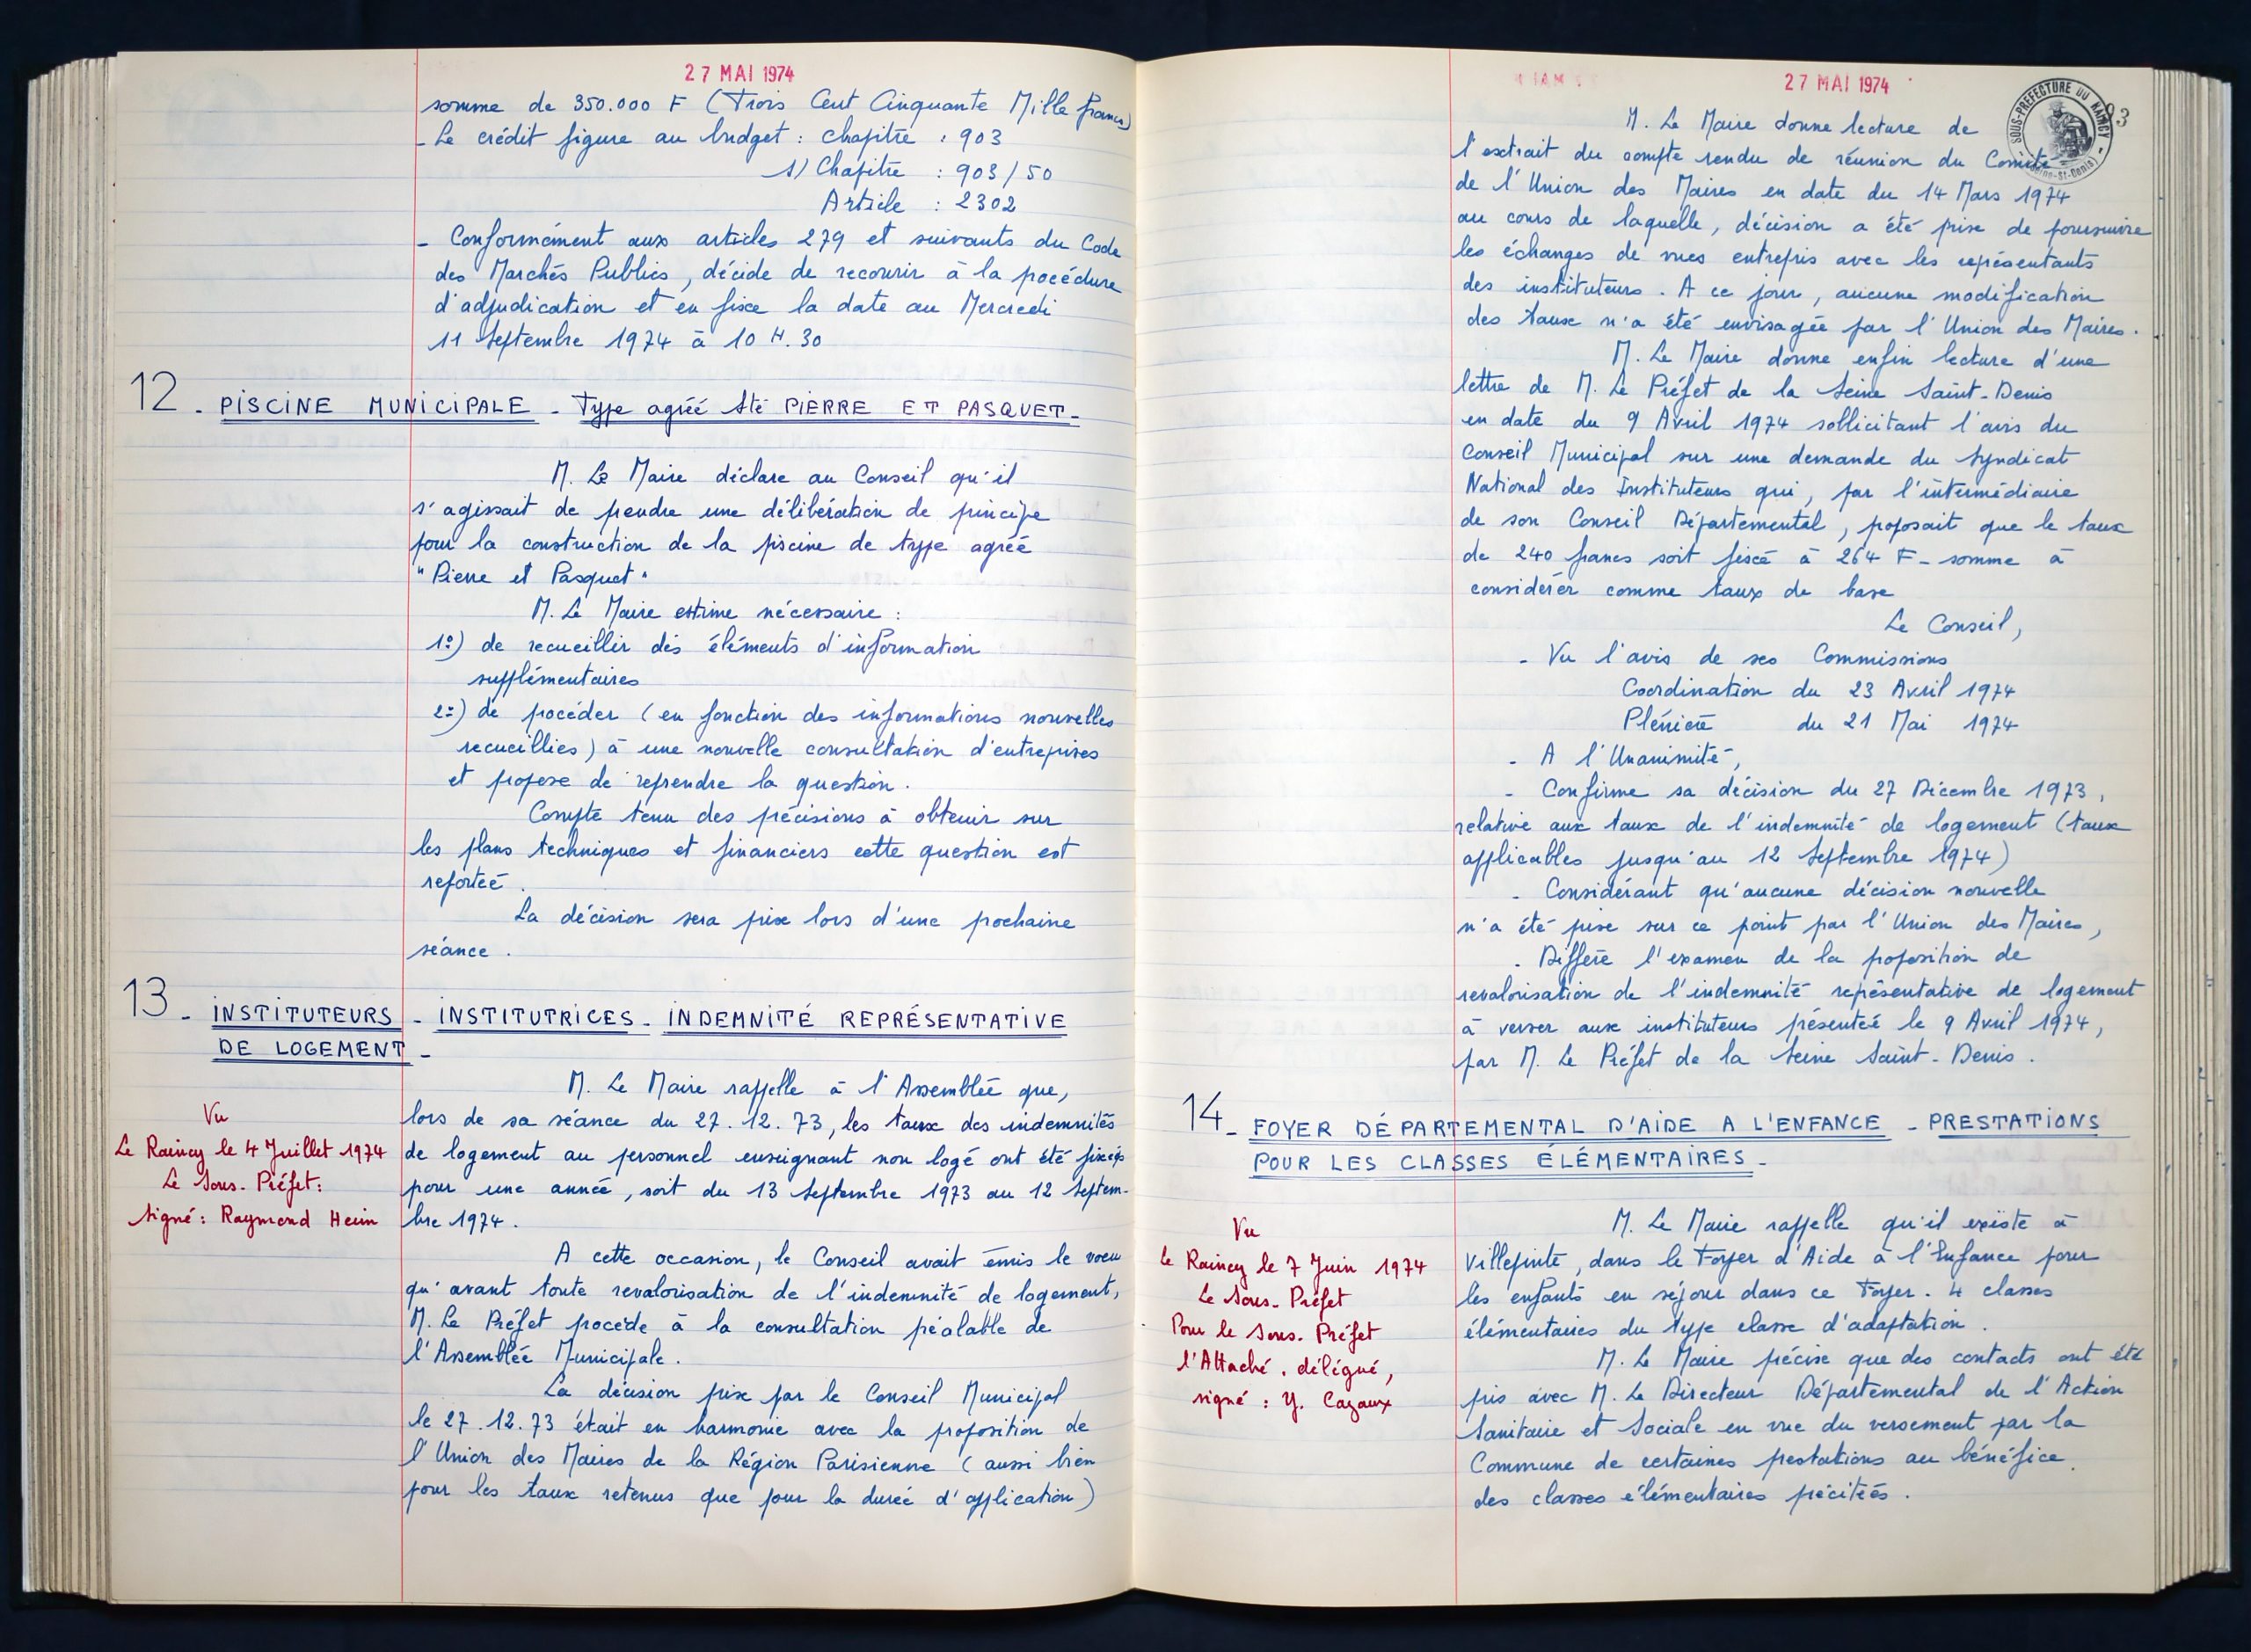 27 MAI 1974
somme de 350.000 F (Trois Cent Cinquante Mille francs)
- Le crédit figure au budget : chapitre : 903
1) Chapitre : 903/50
Article : 2302
- Conformément aux articles 279 et suivants du Code
des Marchés Publics, décide de recourir à la procédure
d'adjudication et en fixe la date au Mercredi
11 Septembre 1974 à 10 H. 30
12 - PISCINE MUNICIPALE - Type agréé Sté PIERRE ET PASQUET -
M. Le Maire déclare au Conseil qu'il
s'agissait de prendre une délibération de principe
pour la construction de la piscine de type agréé
"Pierre et Pasquet"
M. Le Maire estime nécessaire :
1º) de recueillir des éléments d'information
supplémentaires
2º) de procéder (en fonction des informations nouvelles
recueillies) à une nouvelle consultation d'entreprises
et propose de reprendre la question.
Compte tenu des précisions à obtenir sur
les plans techniques et financiers cette question est
reportée.
La décision sera prise lors d'une prochaine
séance.
13 - INSTITUTEURS - INSTITUTRICES - INDEMNITÉ REPRÉSENTATIVE
DE LOGEMENT -
M. Le Maire rappelle à l'Assemblée que,
lors de sa séance du 27.12.73, les taux des indemnités
de logement au personnel enseignant non logé ont été fixés
pour une année, soit du 13 Septembre 1973 au 12 Septem-
bre 1974.
Vu
Le Raincy le 4 Juillet 1974
Le Sous-Préfet :
signé : Raymond Heim
A cette occasion, le Conseil avait émis le voeu
qu'avant toute revalorisation de l'indemnité de logement,
M. Le Préfet procède à la consultation préalable de
l'Assemblée Municipale.
La décision prise par le Conseil Municipal
le 27.12.73 était en harmonie avec la proposition de
l'Union des Maires de la Région Parisienne (aussi bien
pour les taux retenus que pour la durée d'application)
27 MAI 1974
SOUS-PRÉFECTURE DU RAINCY
(Seine-St-Denis)
M. Le Maire donne lecture de
l'extrait du compte rendu de réunion du Comité
de l'Union des Maires en date du 14 Mars 1974
au cours de laquelle, décision a été prise de poursuivre
les échanges de vues entrepris avec les représentants
des instituteurs. A ce jour, aucune modification
des taux n'a été envisagée par l'Union des Maires.
M. Le Maire donne enfin lecture d'une
lettre de M. Le Préfet de la Seine Saint-Denis
en date du 9 Avril 1974 sollicitant l'avis du
Conseil Municipal sur une demande du Syndicat
National des Instituteurs qui, par l'intermédiaire
de son Conseil Départemental, proposait que le taux
de 240 francs soit fixé à 264 F - somme à
considérer comme taux de base
Le Conseil,
- Vu l'avis de ses Commissions
Coordination du 23 Avril 1974
Plénière du 21 Mai 1974
- A l'Unanimité,
- Confirme sa décision du 27 Décembre 1973,
relative aux taux de l'indemnité de logement (taux
applicables jusqu'au 12 Septembre 1974)
- Considérant qu'aucune décision nouvelle
n'a été prise sur ce point par l'Union des Maires,
- Diffère l'examen de la proposition de
revalorisation de l'indemnité représentative de logement
à verser aux instituteurs présentée le 9 Avril 1974,
par M. Le Préfet de la Seine Saint-Denis.
14 - FOYER DÉPARTEMENTAL D'AIDE A L'ENFANCE - PRESTATIONS
POUR LES CLASSES ÉLÉMENTAIRES -
M. Le Maire rappelle qu'il existe à
Villepinte, dans le Foyer d'Aide à l'Enfance pour
les enfants en séjour dans ce Foyer. 4 classes
élémentaires du type classe d'adaptation.
Vu
Le Raincy le 7 Juin 1974
Le Sous-Préfet
Pour le Sous-Préfet
l'Attaché, délégué,
signé : Y. Cazaux
M. Le Maire précise que des contacts ont été
pris avec M. Le Directeur Départemental de l'Action
Sanitaire et Sociale en vue du versement par la
Commune de certaines prestations au bénéfice
des classes élémentaires précitées.